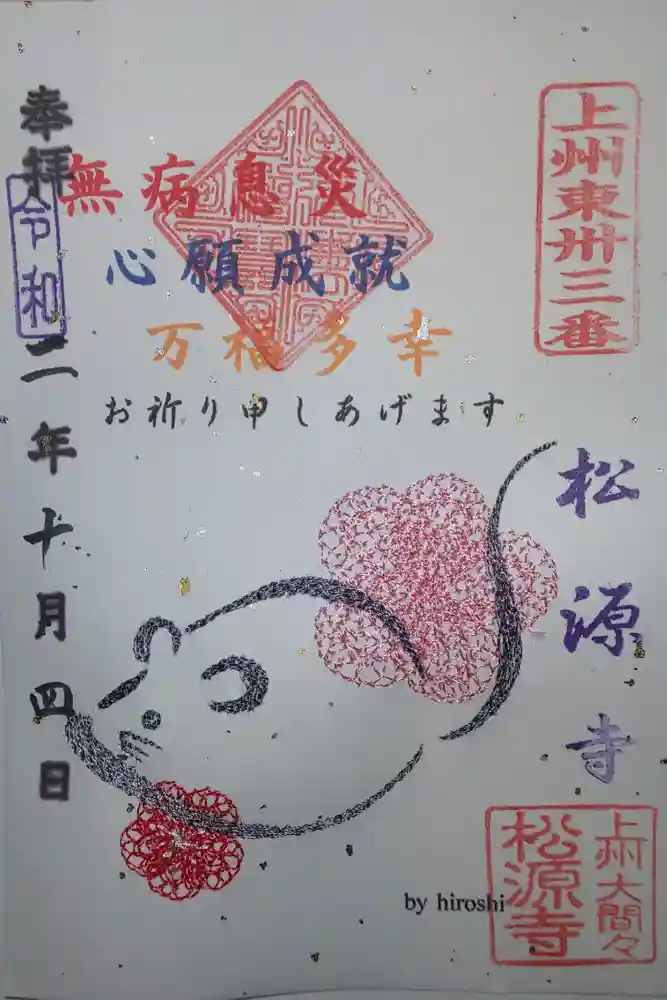 上州東卅三番
松源寺
上州大間々
松源寺
無病息災
心願成就
万福多幸
お祈り申しあげます
奉拝
令和二年十月四日
by hiroshi